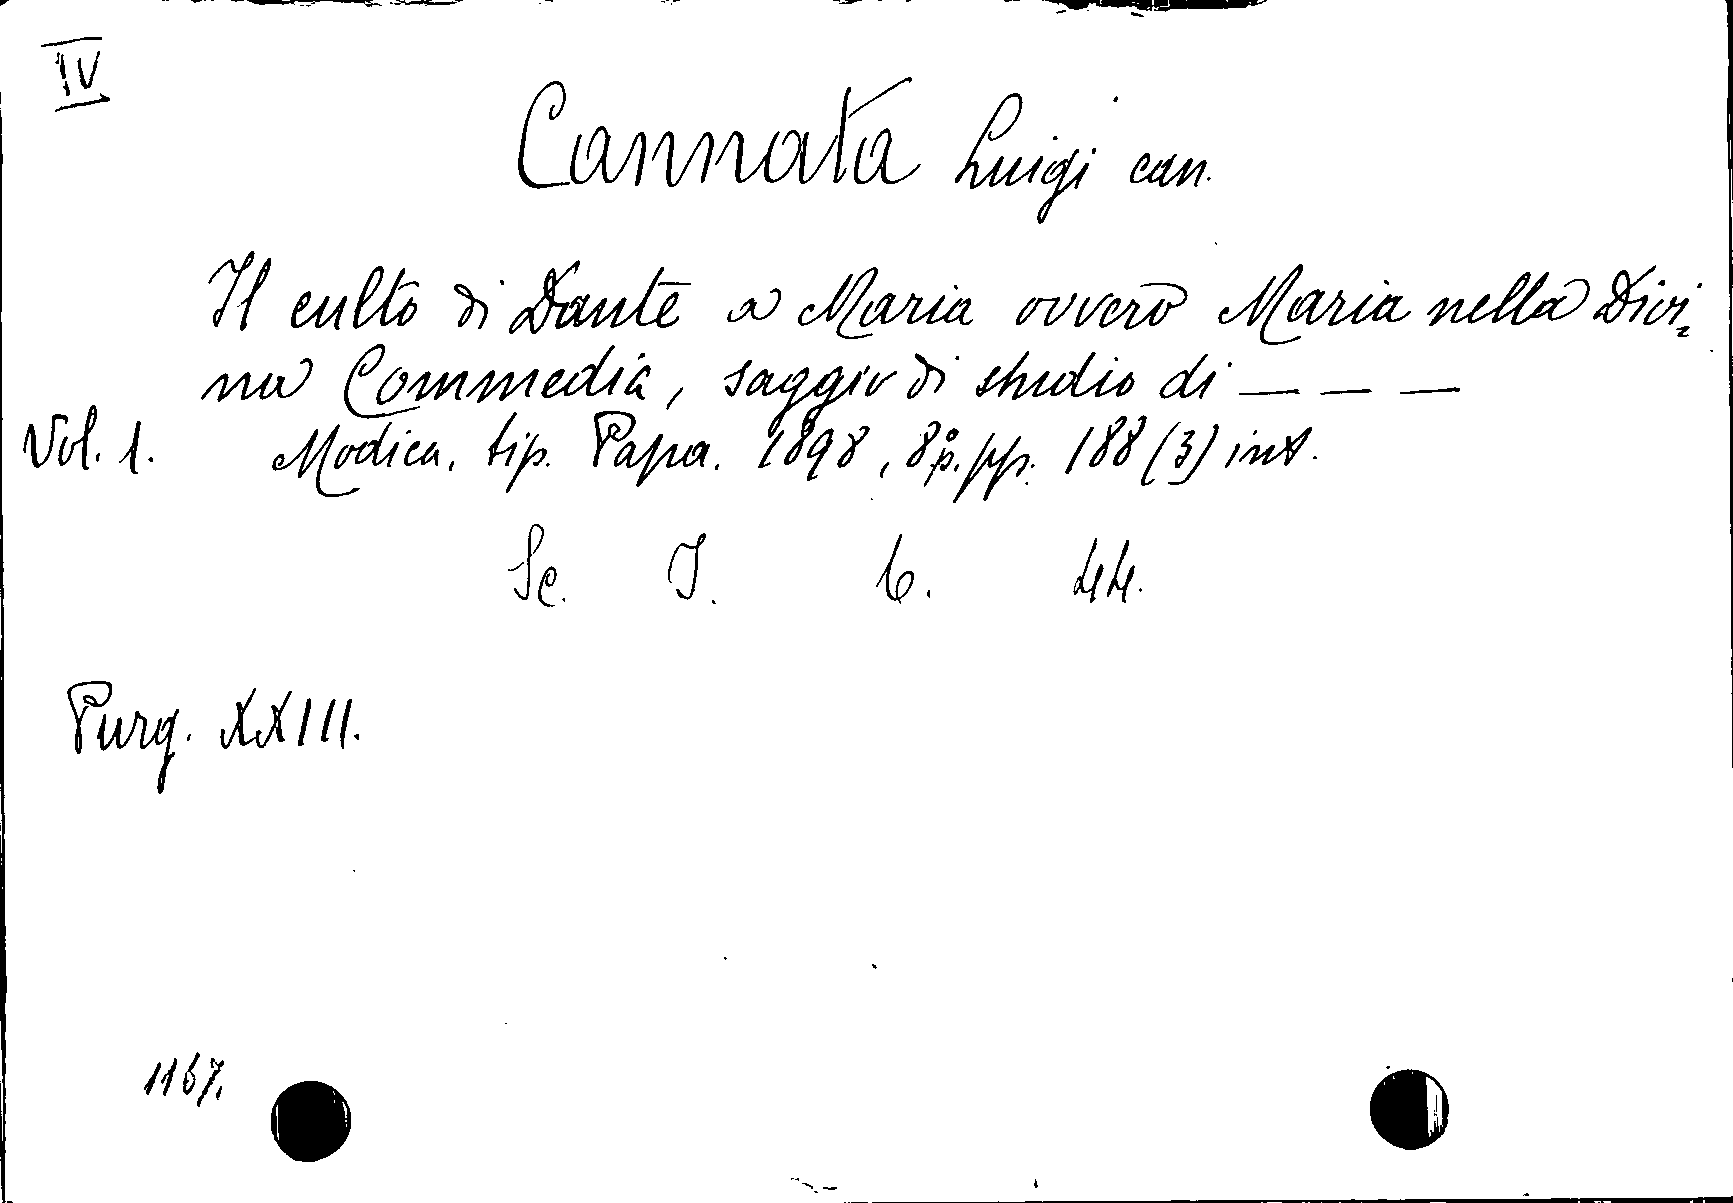 IV
Cannata Luigi can.
Il culto di Dante a Maria ovvero Maria nella Divi=
na Commedia, saggio di studio di _ _ _
Vol. 1. Modica, tip. Papa. 1898, 8º p. pp. 188 (3) int.
Sc. I. 6. 44.
Purg. XXIII.
1167.